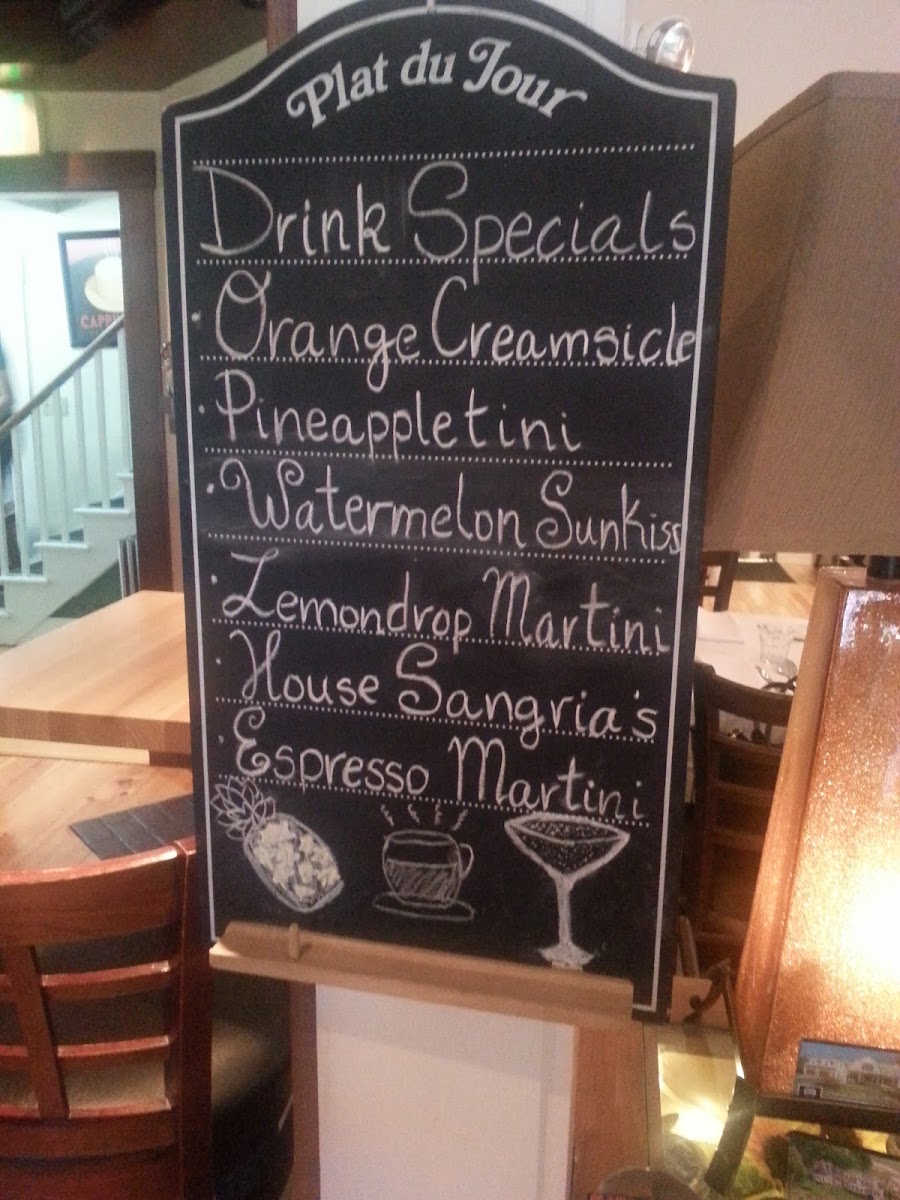 Plat du Jour
Drink Specials
· Orange Creamsicle
· Pineappletini
· Watermelon Sunkiss
· Lemondrop Martini
· House Sangria's
· Espresso Martini